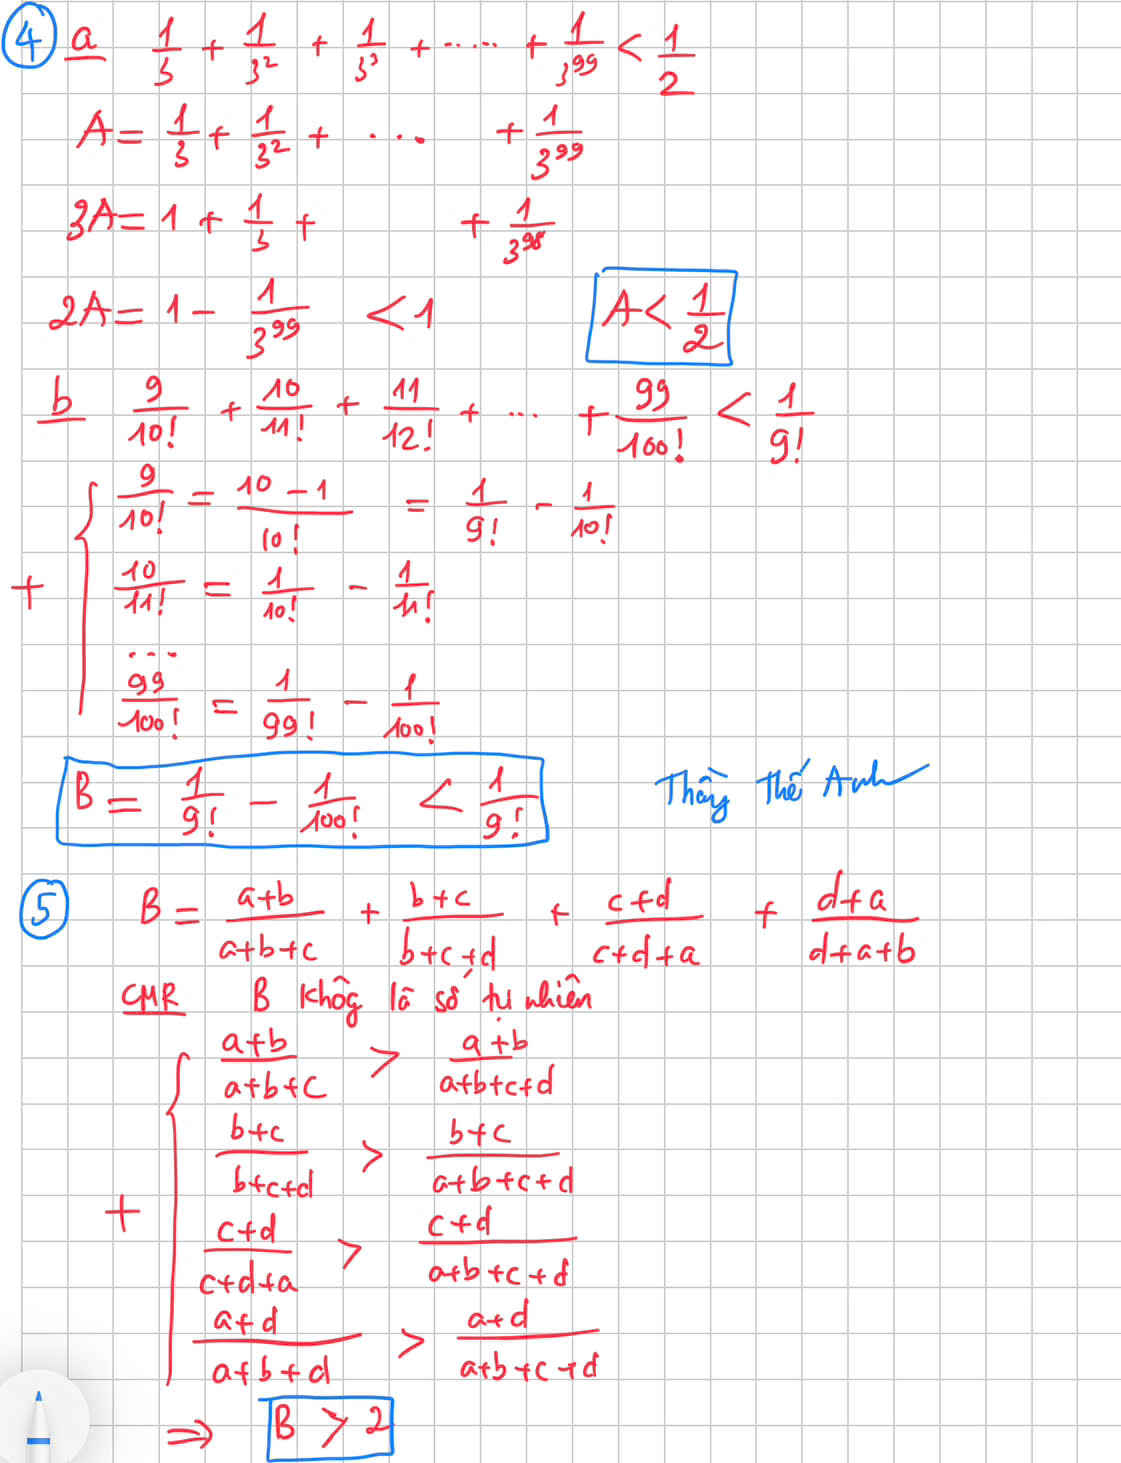 4 a 1/3 + 1/3² + 1/3³ + ..... + 1/3⁹⁹ < 1/2
A = 1/3 + 1/3² + ... + 1/3⁹⁹
3A = 1 + 1/3 + + 1/3⁹⁸
2A = 1 - 1/3⁹⁹ < 1 A < 1/2
b 9/10! + 10/11! + 11/12! + ... + 99/100! < 1/9!
9/10! = (10 - 1)/10! = 1/9! - 1/10!
+ 10/11! = 1/10! - 1/11!
...
99/100! = 1/99! - 1/100!
B = 1/9! - 1/100! < 1/9!
Thầy Thế Anh
5 B = (a+b)/(a+b+c) + (b+c)/(b+c+d) + (c+d)/(c+d+a) + (d+a)/(d+a+b)
CMR B khôg là số tự nhiên
(a+b)/(a+b+c) > (a+b)/(a+b+c+d)
(b+c)/(b+c+d) > (b+c)/(a+b+c+d)
+
(c+d)/(c+d+a) > (c+d)/(a+b+c+d)
(a+d)/(a+b+d) > (a+d)/(a+b+c+d)
⇒ B > 2